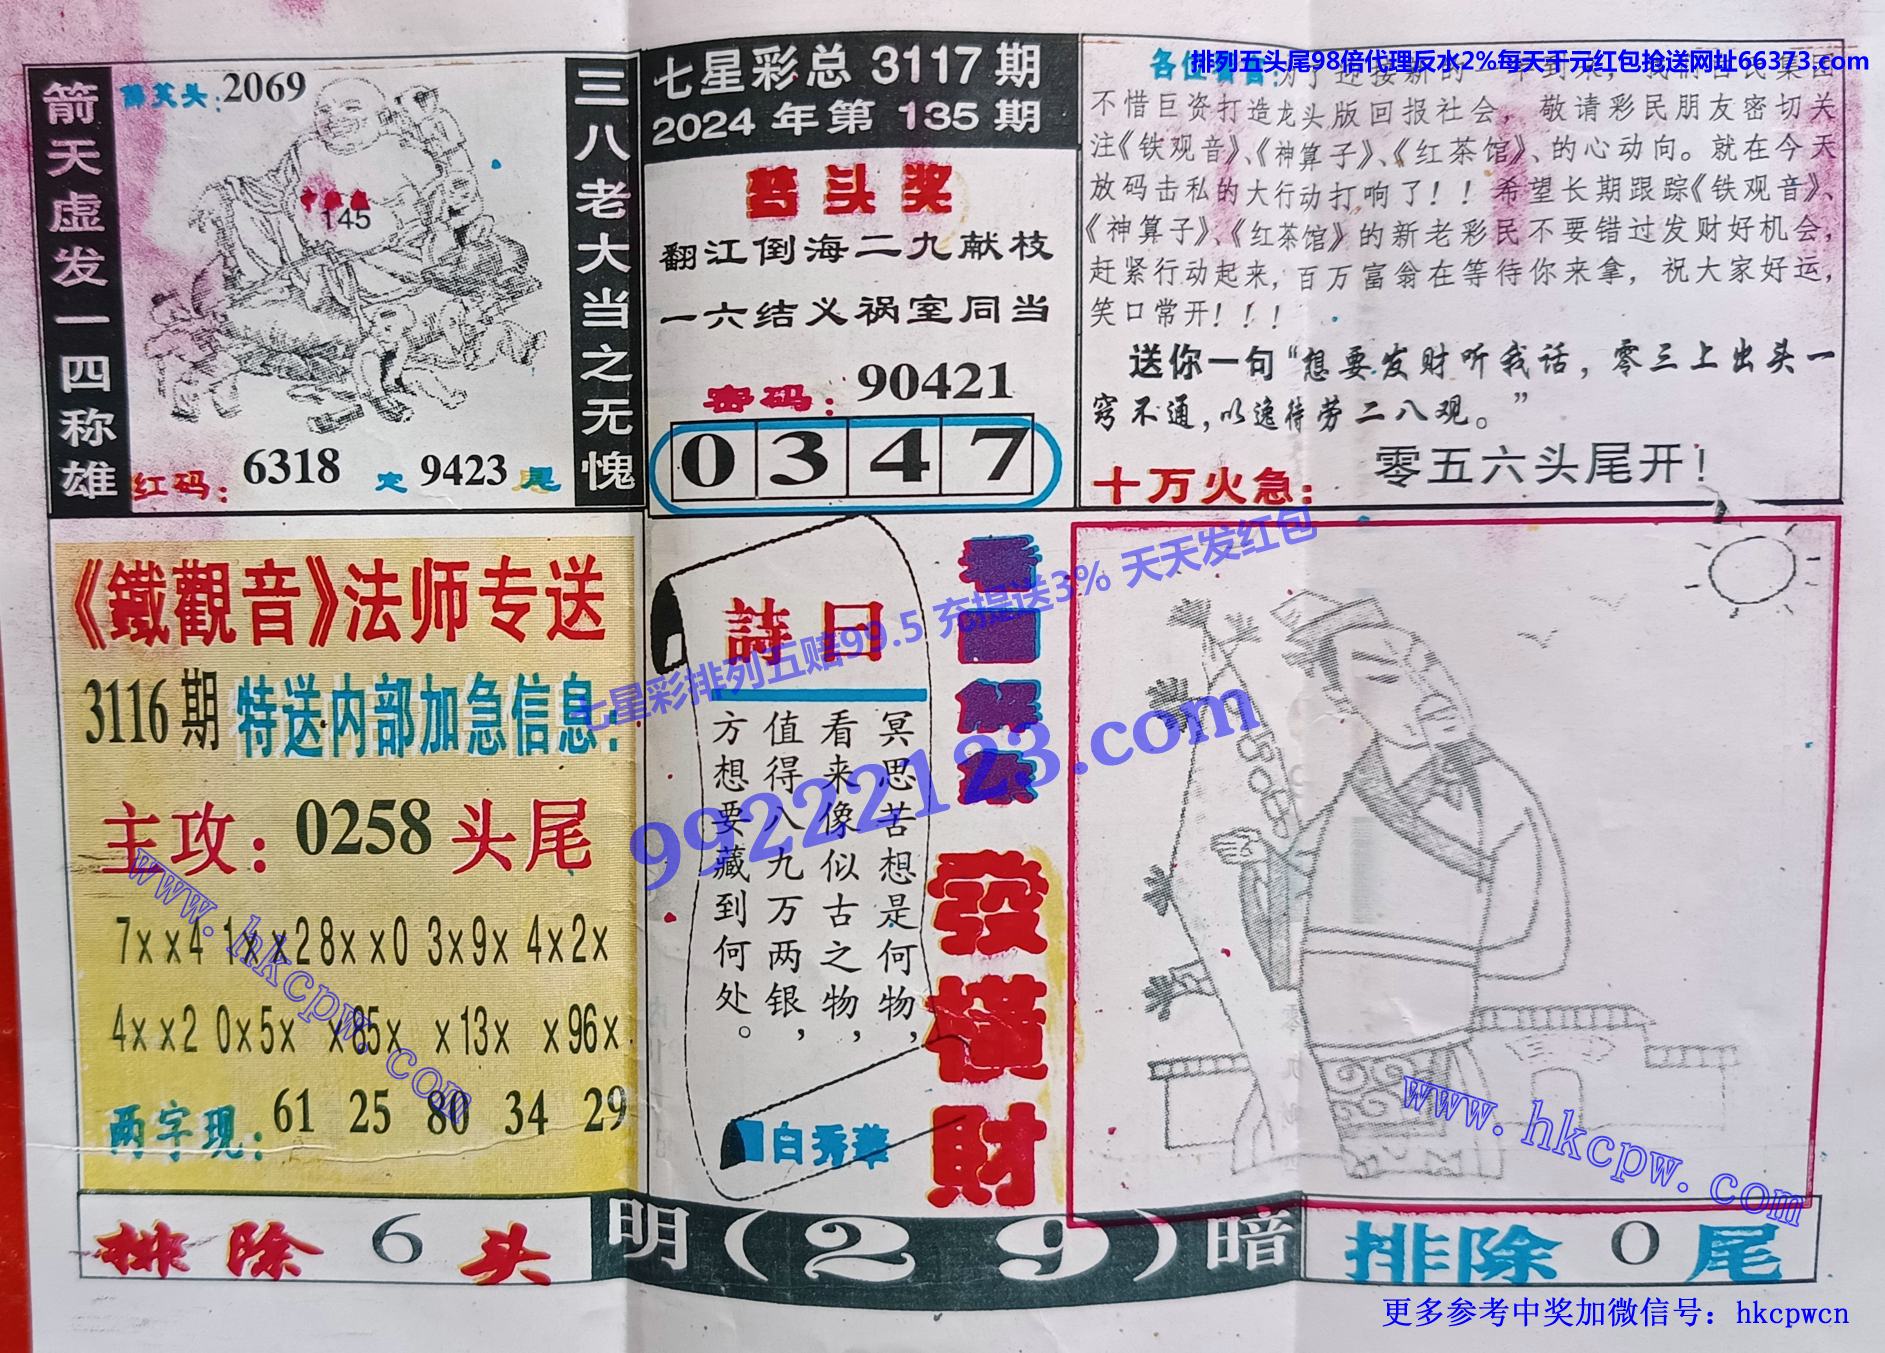 排列五头尾98倍代理反水2%每天千元红包抢送网址66373.com
箭天虚发一四称雄
2069
145
红码：6318 定 9423 尾
三八老大当之无愧
七星彩总 3117 期
2024 年第 135 期
头奖
翻江倒海二九献枝
一六结义祸室同当
密码：90421
0 3 4 7
不惜巨资打造龙头版回报社会，敬请彩民朋友密切关
注《铁观音》、《神算子》、《红茶馆》、的心动向。就在今天
放码击私的大行动打响了！！希望长期跟踪《铁观音》、
《神算子》、《红茶馆》的新老彩民不要错过发财好机会，
赶紧行动起来，百万富翁在等待你来拿，祝大家好运，
笑口常开！！！
送你一句“想要发财听我话，零三上出头一
窍不通，以逸待劳二八观。”
十万火急：零五六头尾开！
《鐵觀音》法师专送
3116 期 特送内部加急信息：
主攻：0258 头尾
7××4 1××2 8××0 3×9× 4×2×
4××2 0×5× ×85× ×13× ×96×
两字现：61 25 80 34 29
詩曰
冥思苦想是何物，
看来像似古之物，
值得八九万两银，
方想要藏到何处。
白秀華
看图解梦
發横財
七星彩排列五赔99.5 充提送3% 天天发红包
99222123.com
www.hkcpw.com
www.hkcpw.com
排除 6 头
明（2 9）暗
排除 0 尾
更多参考中奖加微信号：hkcpwcn